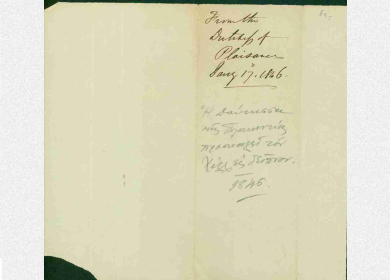 From the
Dutchess of
Plaisance
Jany 17. 1846.
Ἡ Δούκισσα
τῆς Πλακεντίας
προσκαλεῖ τὸν
εἰς δεῖπνον.
1846.